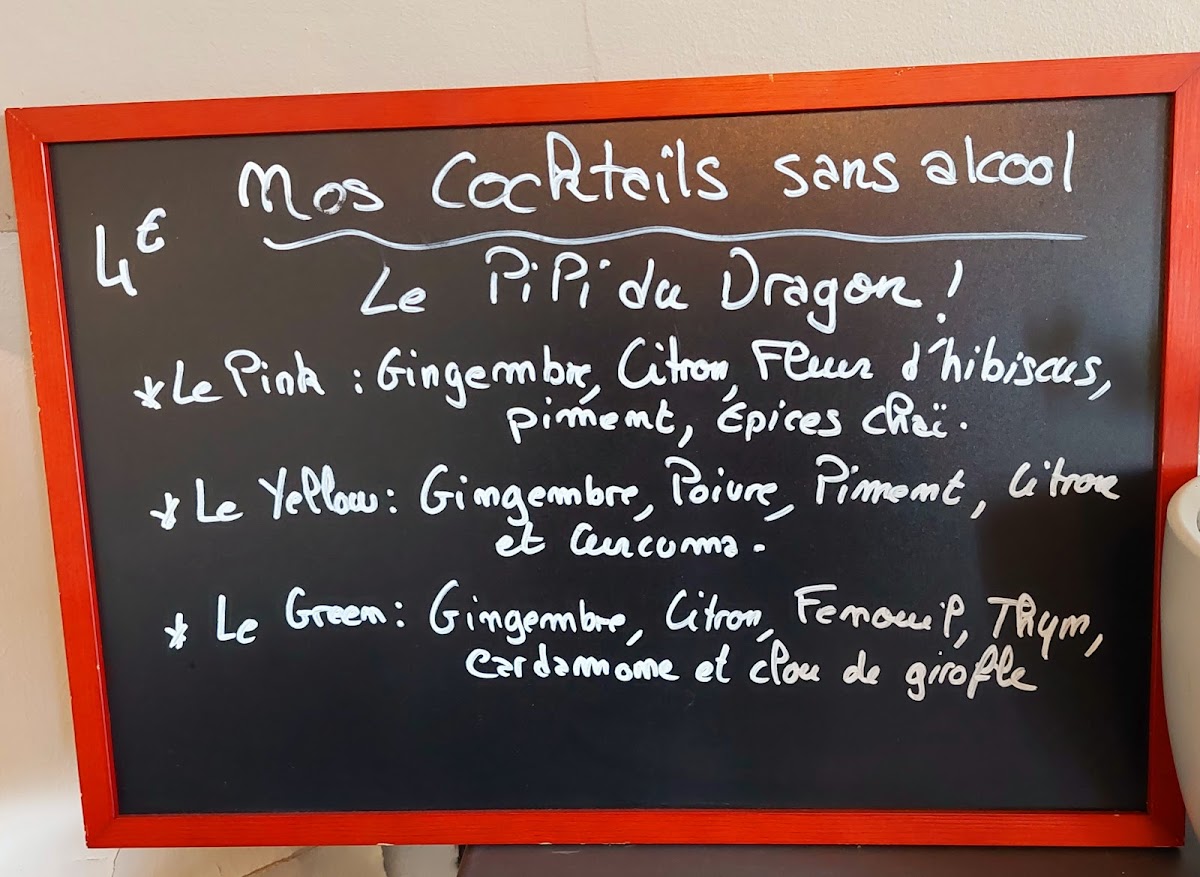 Mos Cocktails sans alcool
4€
Le PiPi du Dragon !
* Le Pink : Gingembre, Citron, Fleur d'hibiscus,
piment, Épices chaï.
* Le Yellow : Gingembre, Poivre, Piment, Citron
et Curcuma.
* Le Green : Gingembre, Citron, Fenouil, Thym,
Cardammome et clou de girofle